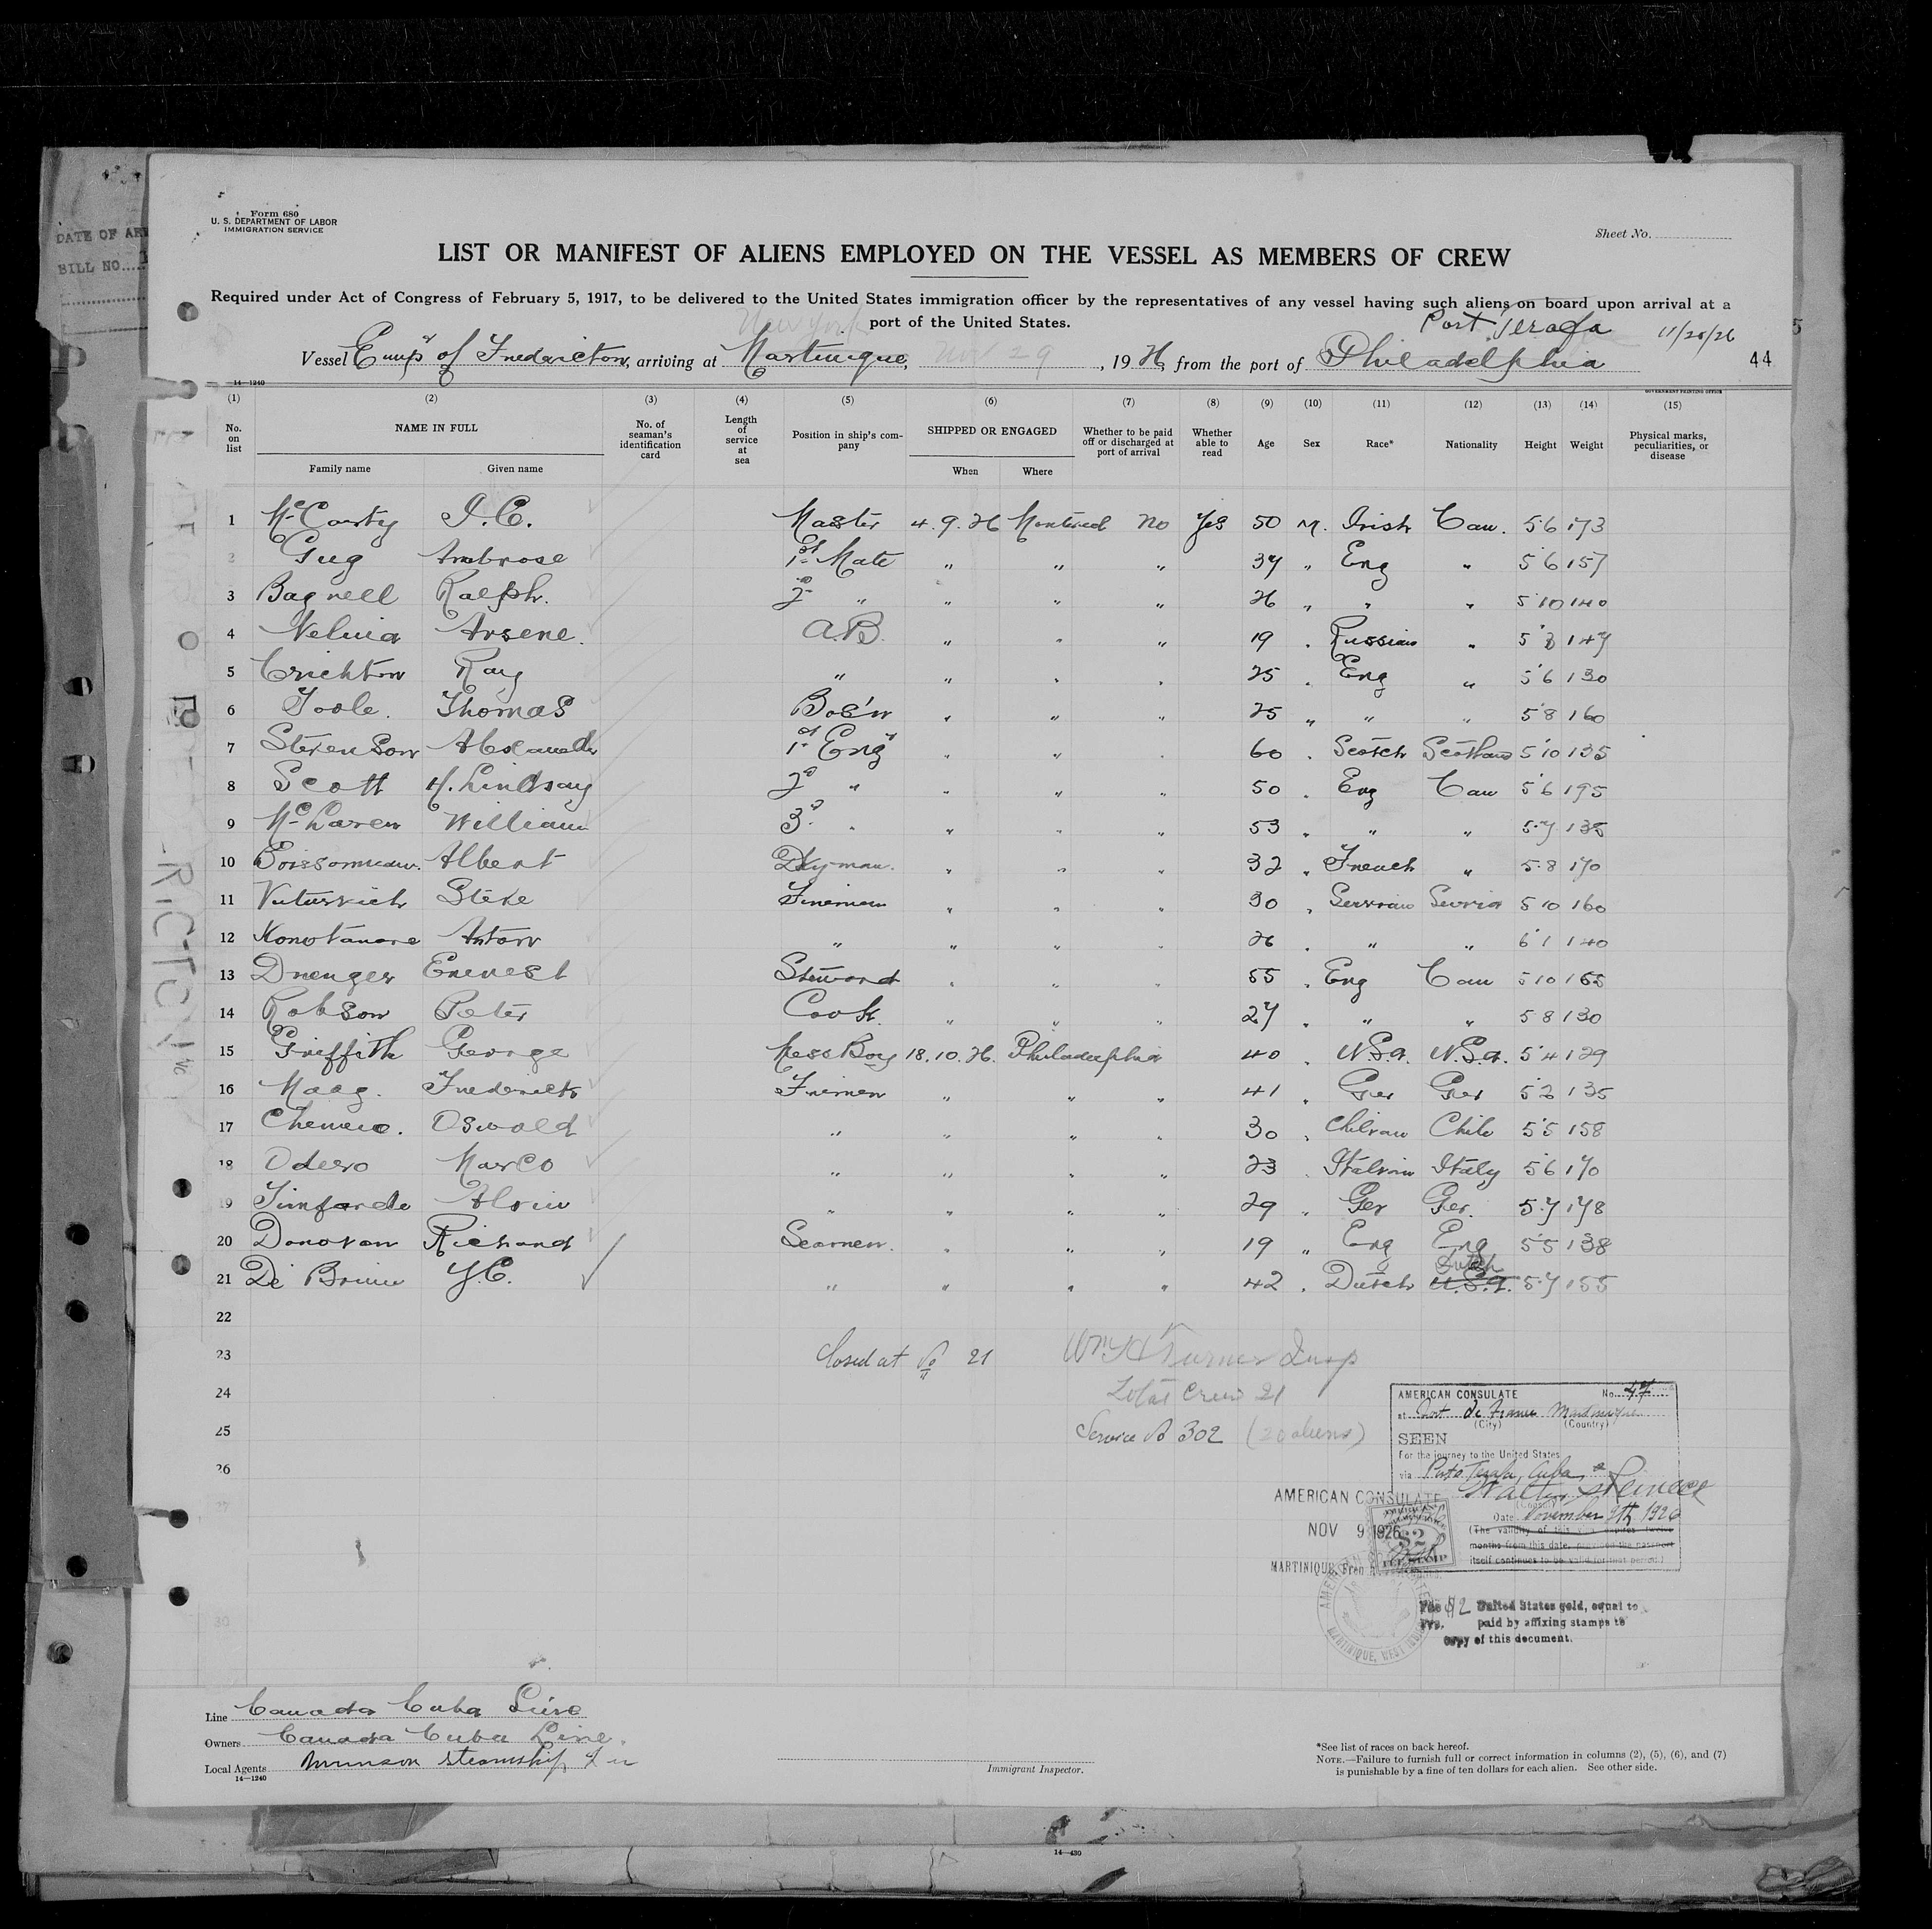 Form 680
U. S. DEPARTMENT OF LABOR
IMMIGRATION SERVICE
DATE OF
BILL NO.
Sheet No.
LIST OR MANIFEST OF ALIENS EMPLOYED ON THE VESSEL AS MEMBERS OF CREW
Required under Act of Congress of February 5, 1917, to be delivered to the United States immigration officer by the representatives of any vessel having such aliens on board upon arrival at a
port of the United States.
New York
Port Terafa 11/20/26
Vessel Empr of Fredericton, arriving at Martinique, Nov 29, 1926, from the port of Philadelphia 44
14—1240
GOVERNMENT PRINTING OFFICE
(1) (2) (3) (4) (5) (6) (7) (8) (9) (10) (11) (12) (13) (14) (15)
No. on list NAME IN FULL No. of seaman's identification card Length of service at sea Position in ship's company SHIPPED OR ENGAGED Whether to be paid off or discharged at port of arrival Whether able to read Age Sex Race* Nationality Height Weight Physical marks, peculiarities, or disease
Family name Given name When Where
1 McCarty J.C. Master 4.9.26 Montreal no Yes 50 M. Irish Can. 5'6 173
2 Gug Ambrose 1st Mate " " " 37 " Eng " 5'6 157
3 Bagnell Ralph. 2nd " " " " 26 " " " 5'10 140
4 Arsene. A.B. " " " 19 " Russian " 5'8 147
5 Crichton Ray " " " " 25 " Eng " 5'6 130
6 Toole. Thomas Bos'n " " " 25 " " " 5'8 160
7 Stevenson Alexander 1st Engr " " " 60 " Scotch Scotland 5'10 135
8 Scott H. Lindsay 2nd " " " " 50 " Eng Can 5'6 195
9 McLaren William 3rd " " " " 53 " " " 5.7 135
10 Albert Dkyman. " " " 32 " French " 5.8 170
11 Steve Firemen " " " 30 " 5 10 160
12 Anton " " " " 26 " " " 6'1 140
13 Drenger Ernest Steward " " " 55 " Eng Can 5 10 165
14 Robson Peter Cook " " " 27 " " " 5 8 130
15 Griffith George Mess Boy 18.10.26. Philadelphia 40 " U.S.a. U.S.a. 5'4 129
16 Maag. Frederick Firemen " " " 41 " Ger Ger 5'2 135
17 Oswald " " " " 30 " Chilian Chile 5'5 158
18 Odero Marco " " " " 23 " Italian Italy 5'6 170
19 " " " " 29 " Ger Ger. 5.7 178
20 Donovan Richard Seamen. " " " 19 " Eng Eng 5'5 138
Dutch
21 De Bruin Y.C. " " " " 42 " Dutch U.S.A. 5.7 155
22
23 Closed at No 21 Wm H Turner Insp
24 Total Crew 21
25 Service No 302 (20 aliens)
26
30
AMERICAN CONSULATE No. 47
at Fort de France Martinique
(City) (Country)
SEEN
For the journey to the United States
via Porto Terafa, Cuba
Walter
(Consul)
Date November 9th 1926
(The validity of this visa expires twelve
months from this date, provided the passport
itself continues to be valid for that period.)
AMERICAN CONSULATE
NOV 9 1926
MARTINIQUE, Fren
$2
FEE STAMP
MARTINIQUE, WEST INDIES
Fee $2 United States gold, equal to
Frs. paid by affixing stamps to
copy of this document.
Line Canada Cuba Line
Owners Canada Cuba Line.
Local Agents Munson Steamship Line
14—1240
Immigrant Inspector.
*See list of races on back hereof.
NOTE.—Failure to furnish full or correct information in columns (2), (5), (6), and (7)
is punishable by a fine of ten dollars for each alien. See other side.
14—430